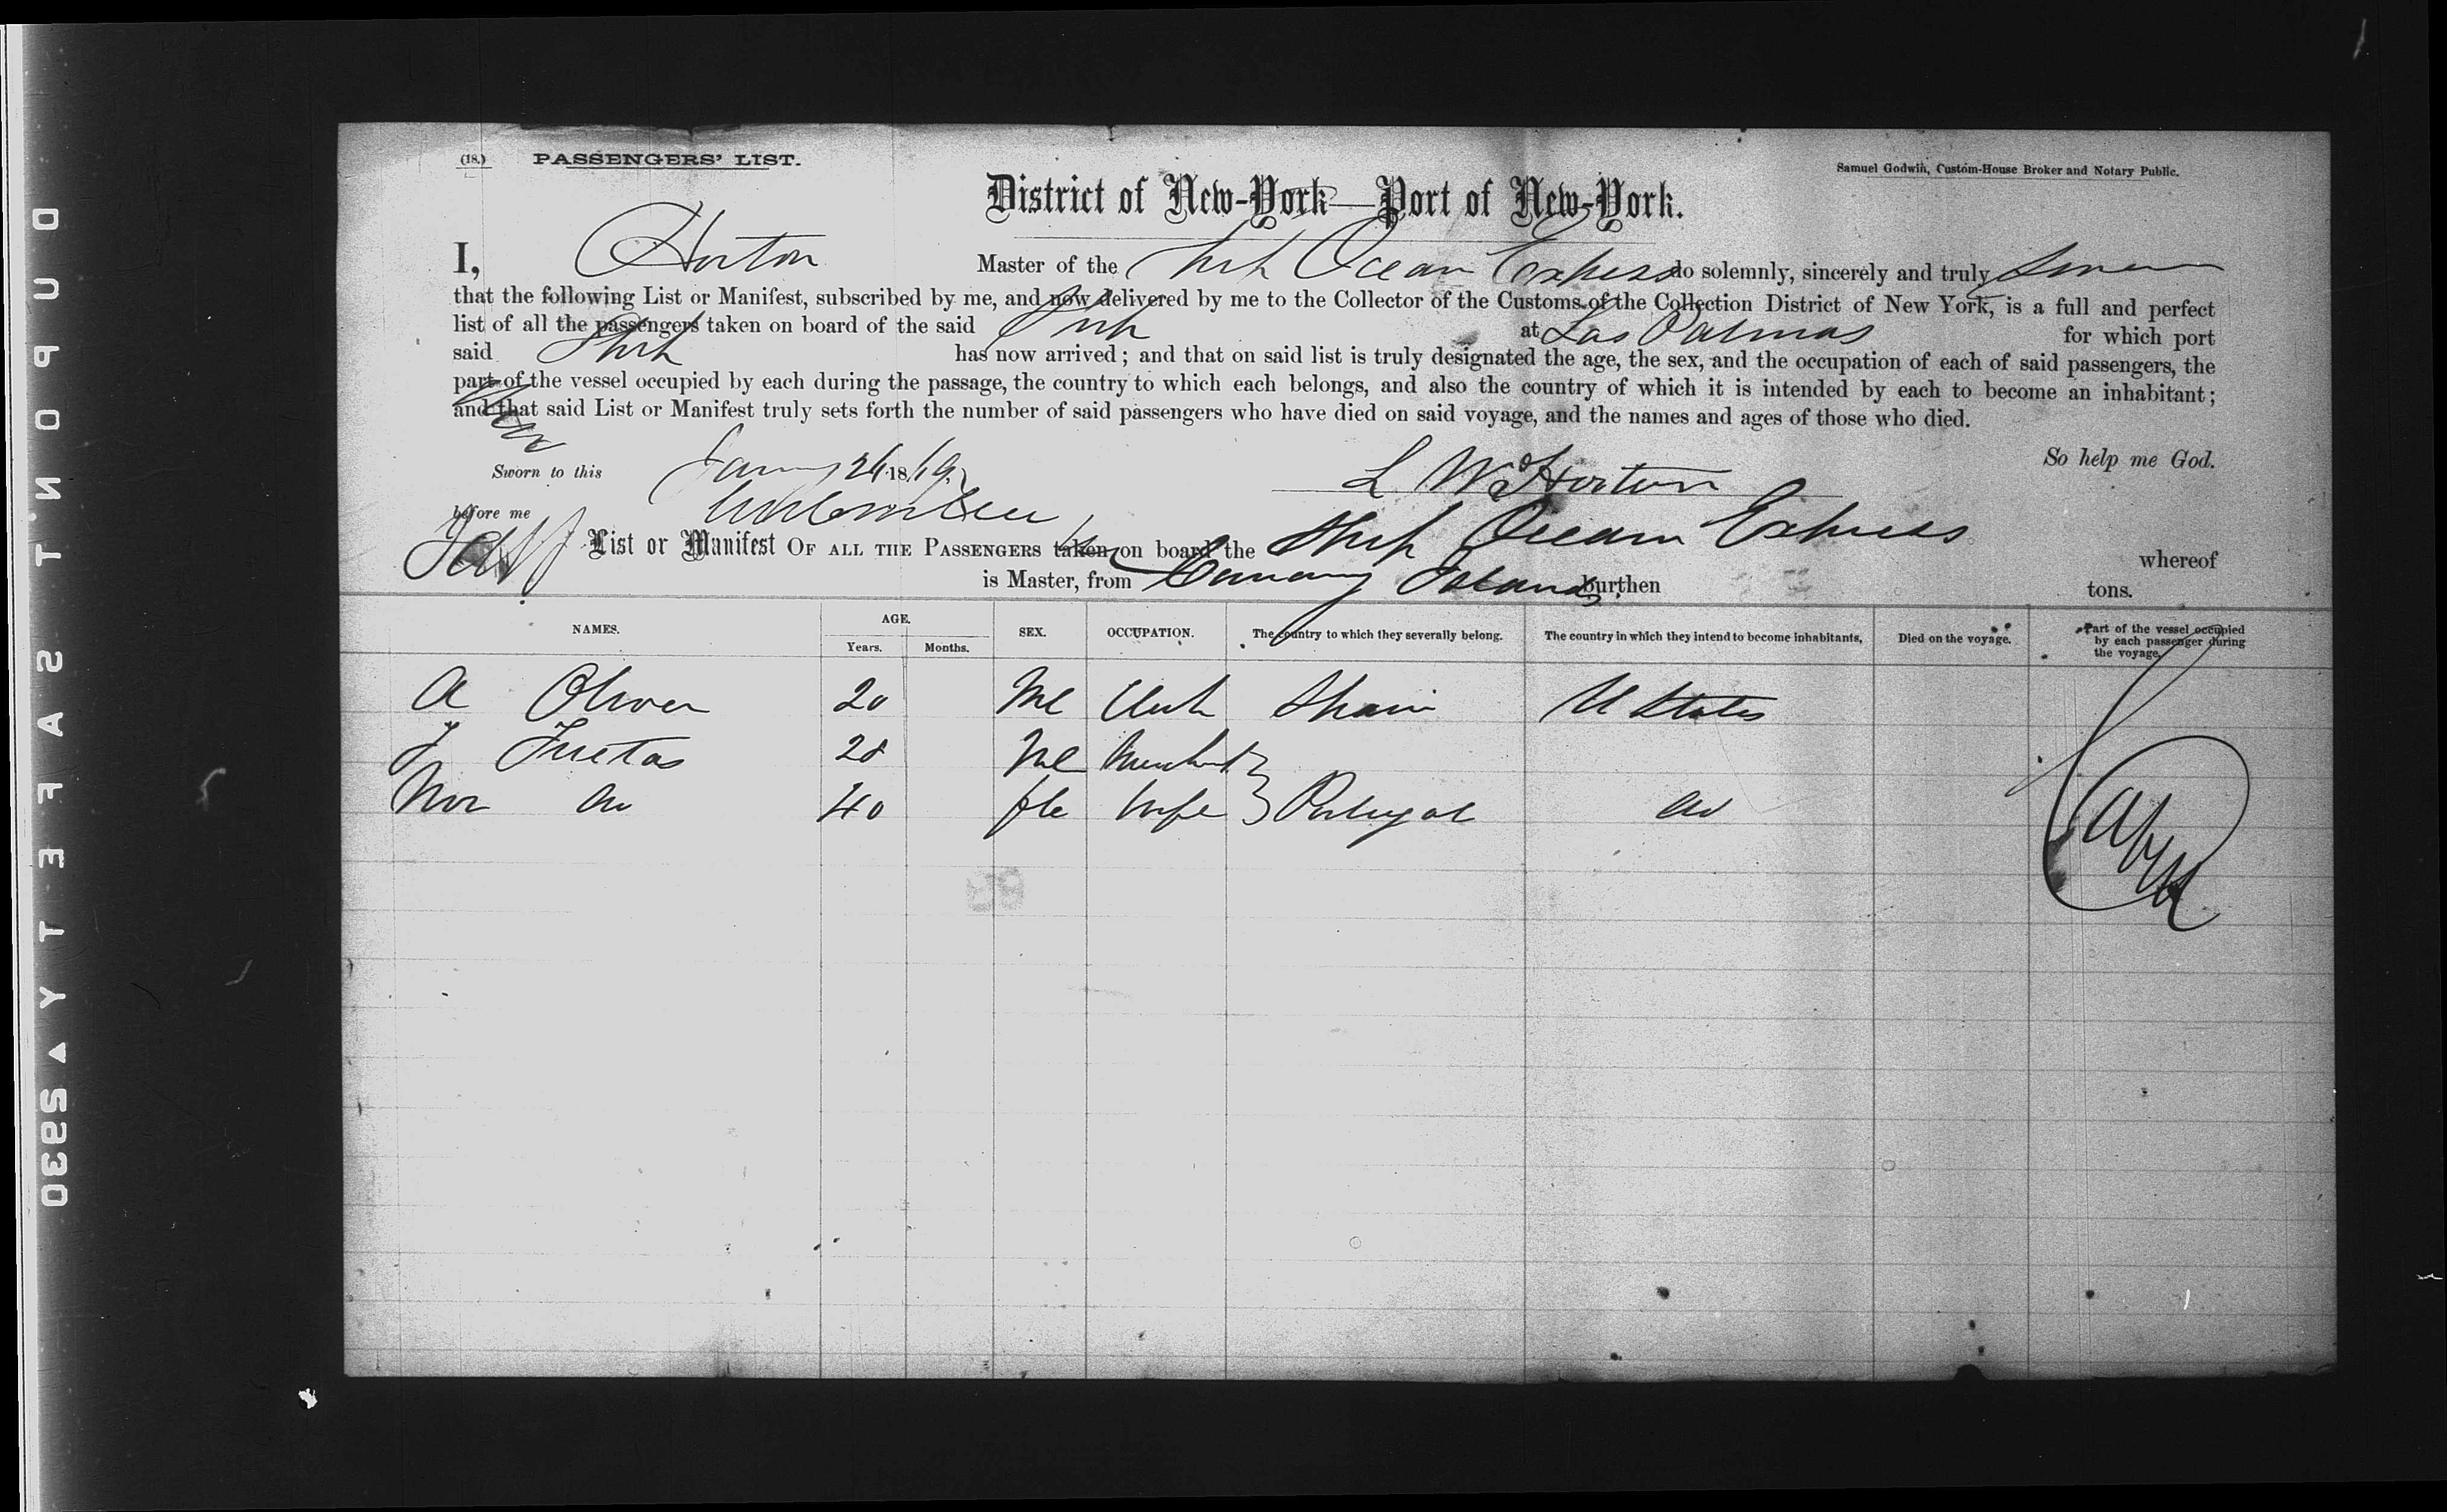 (18.) PASSENGERS' LIST.
Samuel Godwin, Custom-House Broker and Notary Public.
District of New-York—Port of New-York.
I, Horton Master of the Ship Ocean Express do solemnly, sincerely and truly Swear
that the following List or Manifest, subscribed by me, and now delivered by me to the Collector of the Customs of the Collection District of New York, is a full and perfect
list of all the passengers taken on board of the said Ship at Las Palmas for which port
said Ship has now arrived; and that on said list is truly designated the age, the sex, and the occupation of each of said passengers, the
part of the vessel occupied by each during the passage, the country to which each belongs, and also the country of which it is intended by each to become an inhabitant;
and that said List or Manifest truly sets forth the number of said passengers who have died on said voyage, and the names and ages of those who died.
So help me God.
Sworn to this 18
L W Horton
before me
List or Manifest OF ALL THE PASSENGERS taken on board the Ship Ocean Express whereof
is Master, from Canary Islands burthen tons.
NAMES. AGE. Years. Months. SEX. OCCUPATION. The country to which they severally belong. The country in which they intend to become inhabitants, Died on the voyage. Part of the vessel occupied by each passenger during the voyage.
A Oliver 20 Ml Clerk Spain U States
J 28 Ml Merchant
40 fle Wife Portugal do
DUPON'T SAFETY ▲ S930